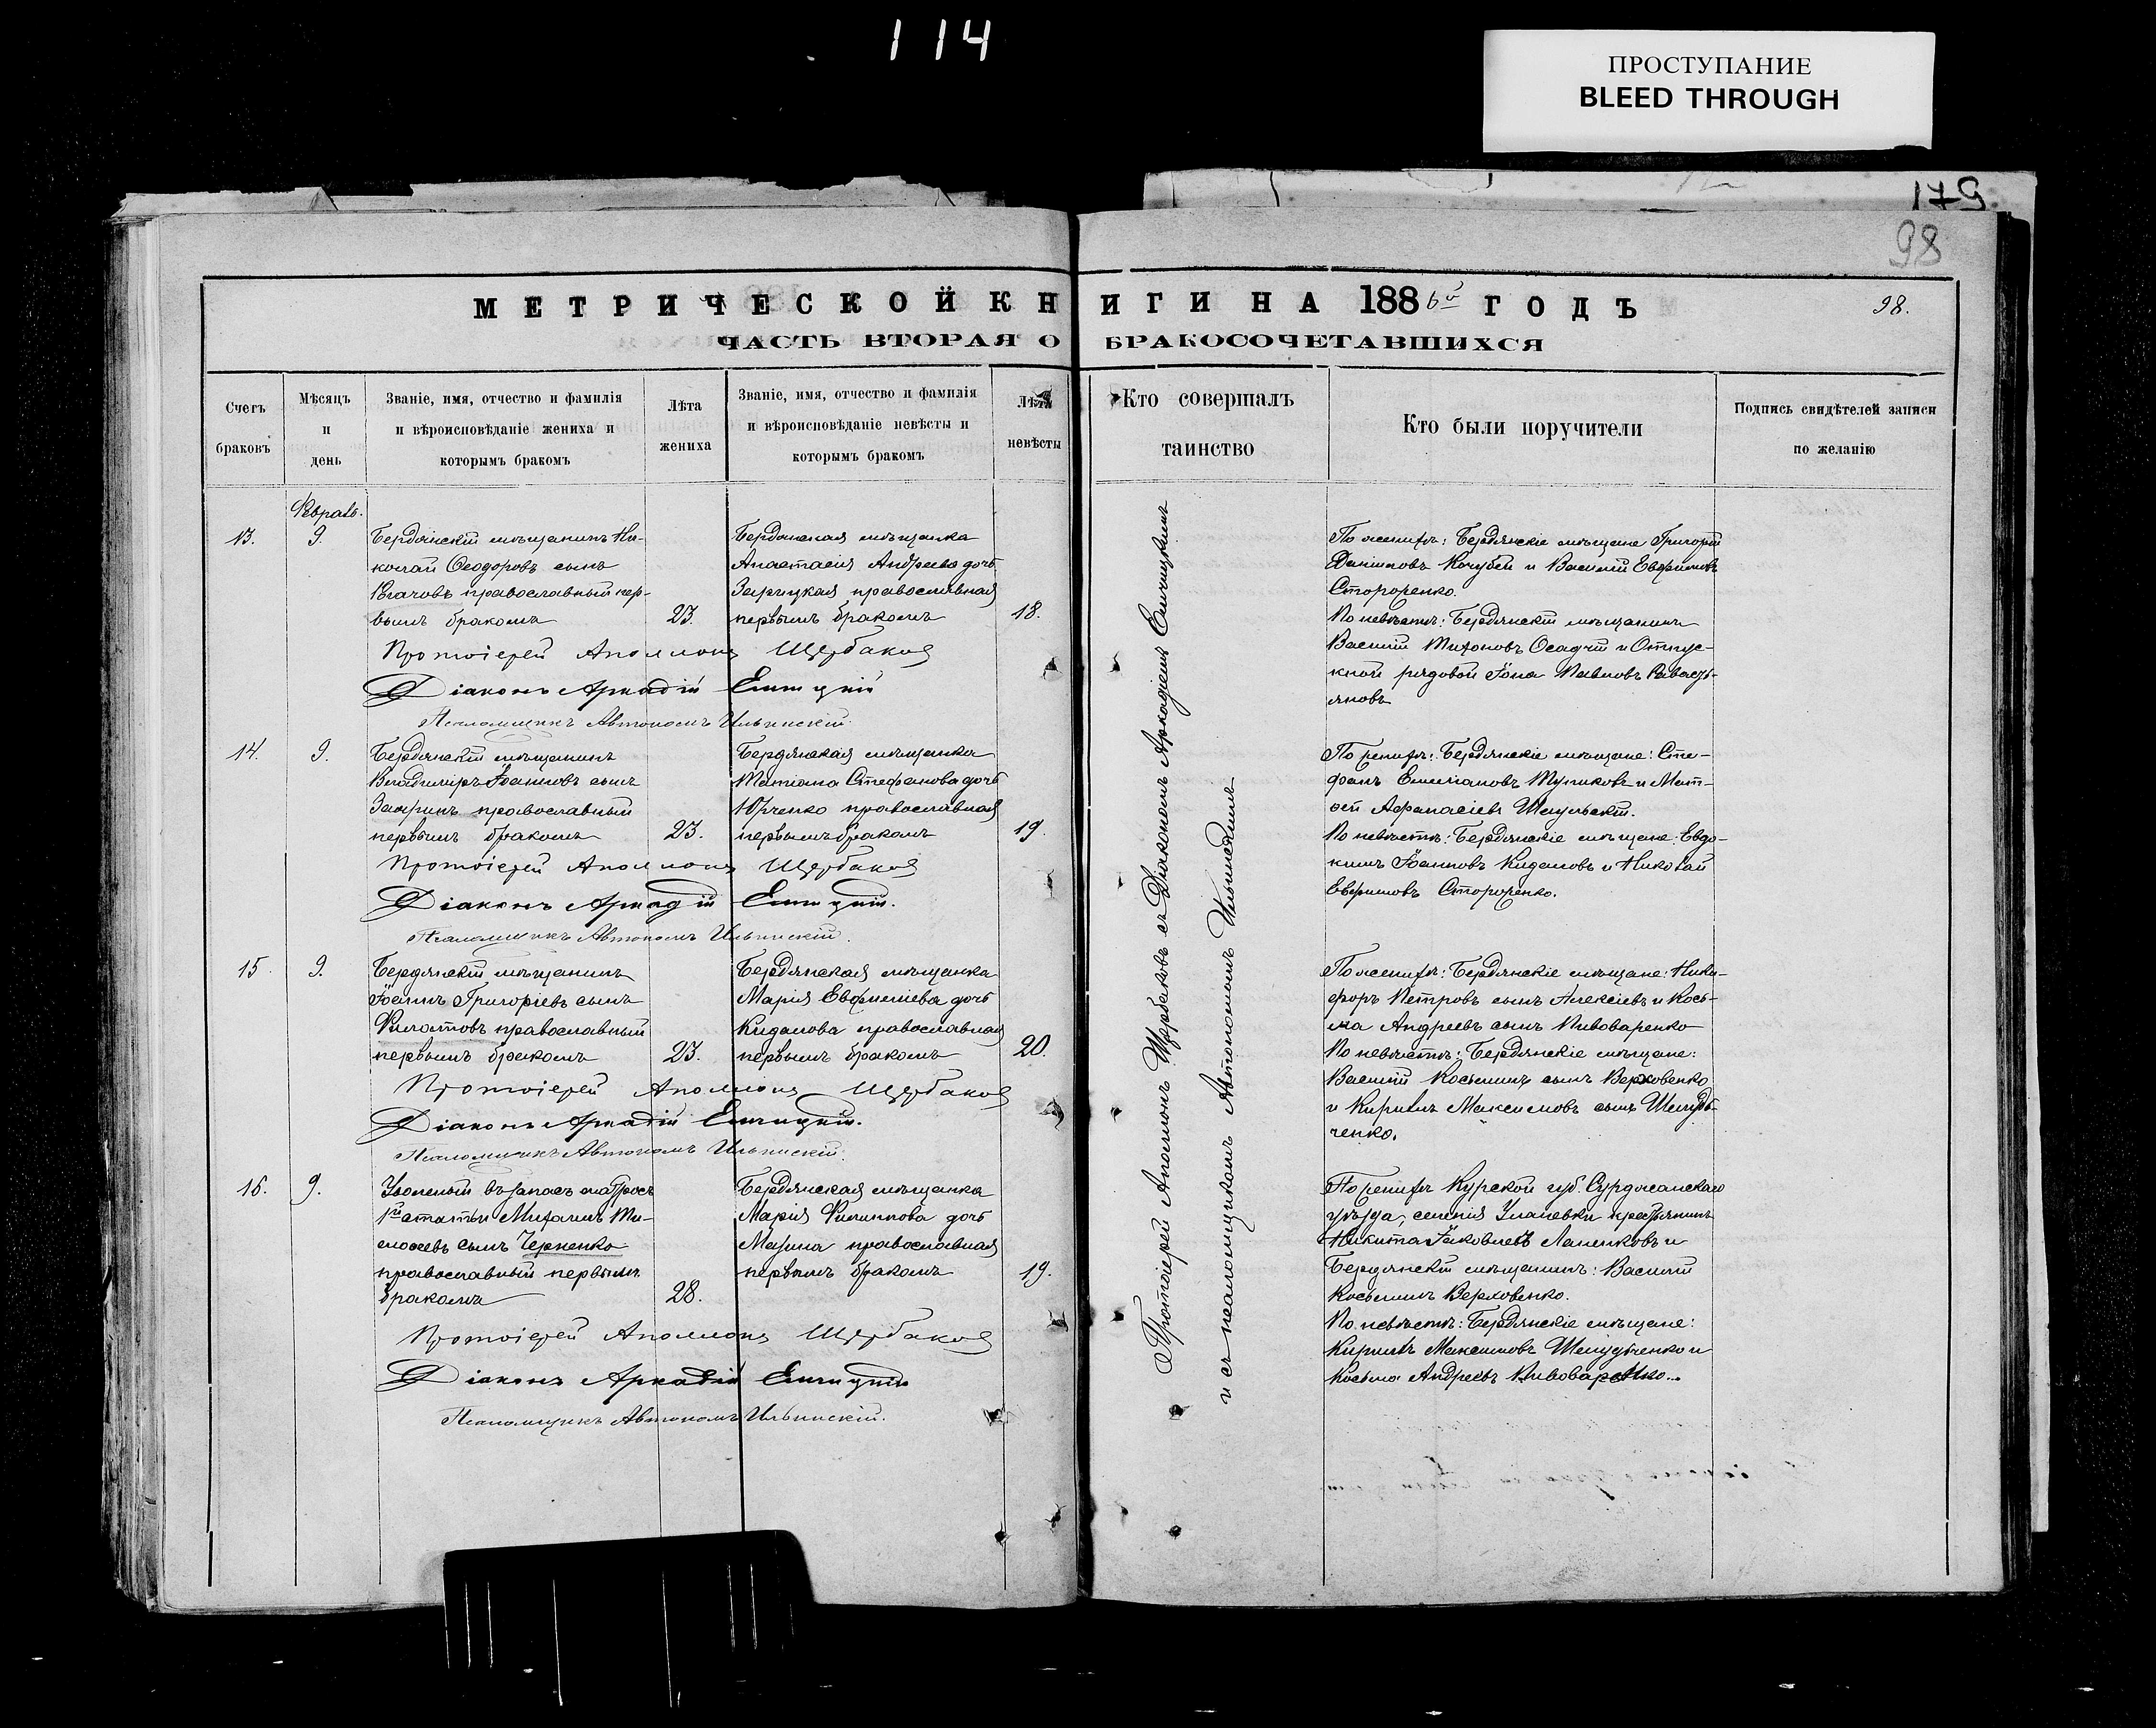 114
ПРОСТУПАНИЕ
BLEED THROUGH
179
98
МЕТРИЧЕСКОЙ КНИГИ НА 1886й ГОДЪ
98.
ЧАСТЬ ВТОРАЯ О БРАКОСОЧЕТАВШИХСЯ
Счетъ
браковъ
Мѣсяцъ
и
день
Званіе, имя, отчество и фамилія
и вѣроисповѣданіе жениха и
которымъ бракомъ
Лѣта
жениха
Званіе, имя, отчество и фамилія
и вѣроисповѣданіе невѣсты и
которымъ бракомъ
Лѣта
невѣсты
Кто совершалъ
таинство
Кто были поручители
Подпись свидѣтелей записи
по желанію
Февраль.
13.
9.
Бердянскій мѣщанинъ Ни-
колай Ѳеодоровъ сынъ
православный пер-
вымъ бракомъ
23.
Бердянская мѣщанка
Анастасія Андреева дочь
Зарицкая православная
первымъ бракомъ
18.
Протоіерей Аполлонъ Щербаковъ
Діаконъ Аркадій
Псаломщикъ Автономъ Ильинскій.
По женихѣ: Бердянскіе мѣщане Григорій
Даниловъ Кочубей и Василій Евфимовъ
Стороженко.
По невѣстѣ: Бердянскій мѣщанинъ
Василій Тихоновъ Осадчій и Отпус-
кной рядовой Іона Павловъ Савасть-
яновъ
14.
9.
Бердянскій мѣщанинъ
Владимиръ Іоанновъ сынъ
православный
первымъ бракомъ
23.
Бердянская мѣщанка
Татіана Стефанова дочь
Юрченко православная
первымъ бракомъ
19.
Протоіерей Аполлонъ Щербаковъ
Діаконъ Аркадій
Псаломщикъ Автономъ Ильинскій.
По женихѣ: Бердянскіе мѣщане: Сте-
фанъ Емеліановъ Тупиковъ и Мат-
ѳей Аѳанасіевъ
По невѣстѣ: Бердянскіе мѣщане: Евдо-
кимъ Іоанновъ Кидаловъ и Николай
Евфимовъ Стороженко.
15.
9.
Бердянскій мѣщанинъ
Іоаннъ Григоріевъ сынъ
Филатовъ православный
первымъ бракомъ
23.
Бердянская мѣщанка
Марія Евфиміева дочь
Кидалова православная
первымъ бракомъ
20.
Протоіерей Аполлонъ Щербаковъ
Діаконъ Аркадій
Псаломщикъ Автономъ Ильинскій.
По женихѣ: Бердянскіе мѣщане: Ники-
форъ Петровъ сынъ Алексѣевъ и Кось-
ма Андреевъ сынъ Пивоваренко
По невѣстѣ: Бердянскіе мѣщане:
Василій Косьминъ сынъ Верховенко
и Кирилъ Максимовъ сынъ Шелудь-
ченко.
16.
9.
Уволеный въ запасъ матросъ
1й статьи Михаилъ Ти-
моѳеевъ сынъ Черненко
православный первымъ
бракомъ
28.
Бердянская мѣщанка
Марія Филиппова дочь
Мазина православная
первымъ бракомъ
19.
Протоіерей Аполлонъ Щербаковъ
Діаконъ Аркадій
Псаломщикъ Автономъ Ильинскій.
По женихѣ Курской губ. Суджанскаго
уѣзда, селенія Уланевки крестьянинъ
Никита Іаковлевъ Лапенковъ и
Бердянскій мѣщанинъ: Василій
Косьминъ Верховенко.
По невѣстѣ: Бердянскіе мѣщане:
Кирилъ Максимовъ Шелудченко и
Косьма Андреевъ Пивоваренко.
Протоіерей Аполлонъ Щербаковъ съ Діакономъ Аркадіемъ
и съ псаломщикомъ Автономомъ Ильинскимъ